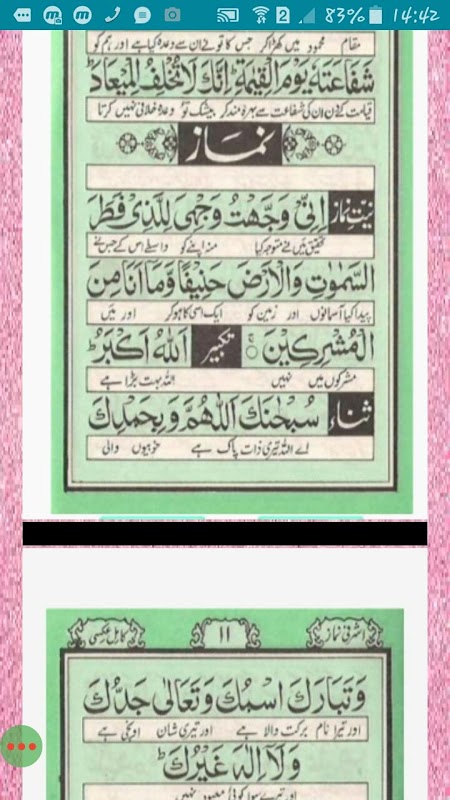 83% 14:42
مقام محمود میں کھڑا کر جس کا تونے ان سے وعدہ کیا ہے اور ہم کو
شَفَاعَتَهٗ يَوْمَ الْقِيٰمَةِ ؕ اِنَّكَ لَا تُخْلِفُ الْمِيْعَادَ ؕ
قیامت کے دن ان کی شفاعت سے بہرہ مند کر بیشک تو وعدہ خلافی نہیں کرتا
نماز
نیت نماز اِنِّیْ وَجَّهْتُ وَجْهِیَ لِلَّذِیْ فَطَرَ
تحقیق میں نے متوجہ کیا منہ اپنے کو واسطے اس کے جس نے
السَّمٰوٰتِ وَالْاَرْضَ حَنِيْفًا وَّمَا اَنَا مِنَ
پیدا کیا آسمانوں اور زمین کو ایک اسی کا ہو کر اور میں
الْمُشْرِكِيْنَ ○ تکبیر اَللهُ اَكْبَرُ ؕ
مشرکوں میں نہیں اللہ بہت بڑا ہے
ثناء سُبْحٰنَكَ اللّٰهُمَّ وَبِحَمْدِكَ
اے اللہ تیری ذات پاک ہے خوبیوں والی
اشرفی نماز ۱۱ کامل عکسی
وَتَبَارَكَ اسْمُكَ وَتَعَالٰی جَدُّكَ
اور تیرا نام برکت والا ہے اور تیری شان اونچی ہے
وَلَآ اِلٰهَ غَيْرُكَ ؕ
اور تیرے سوا کوئی معبود نہیں